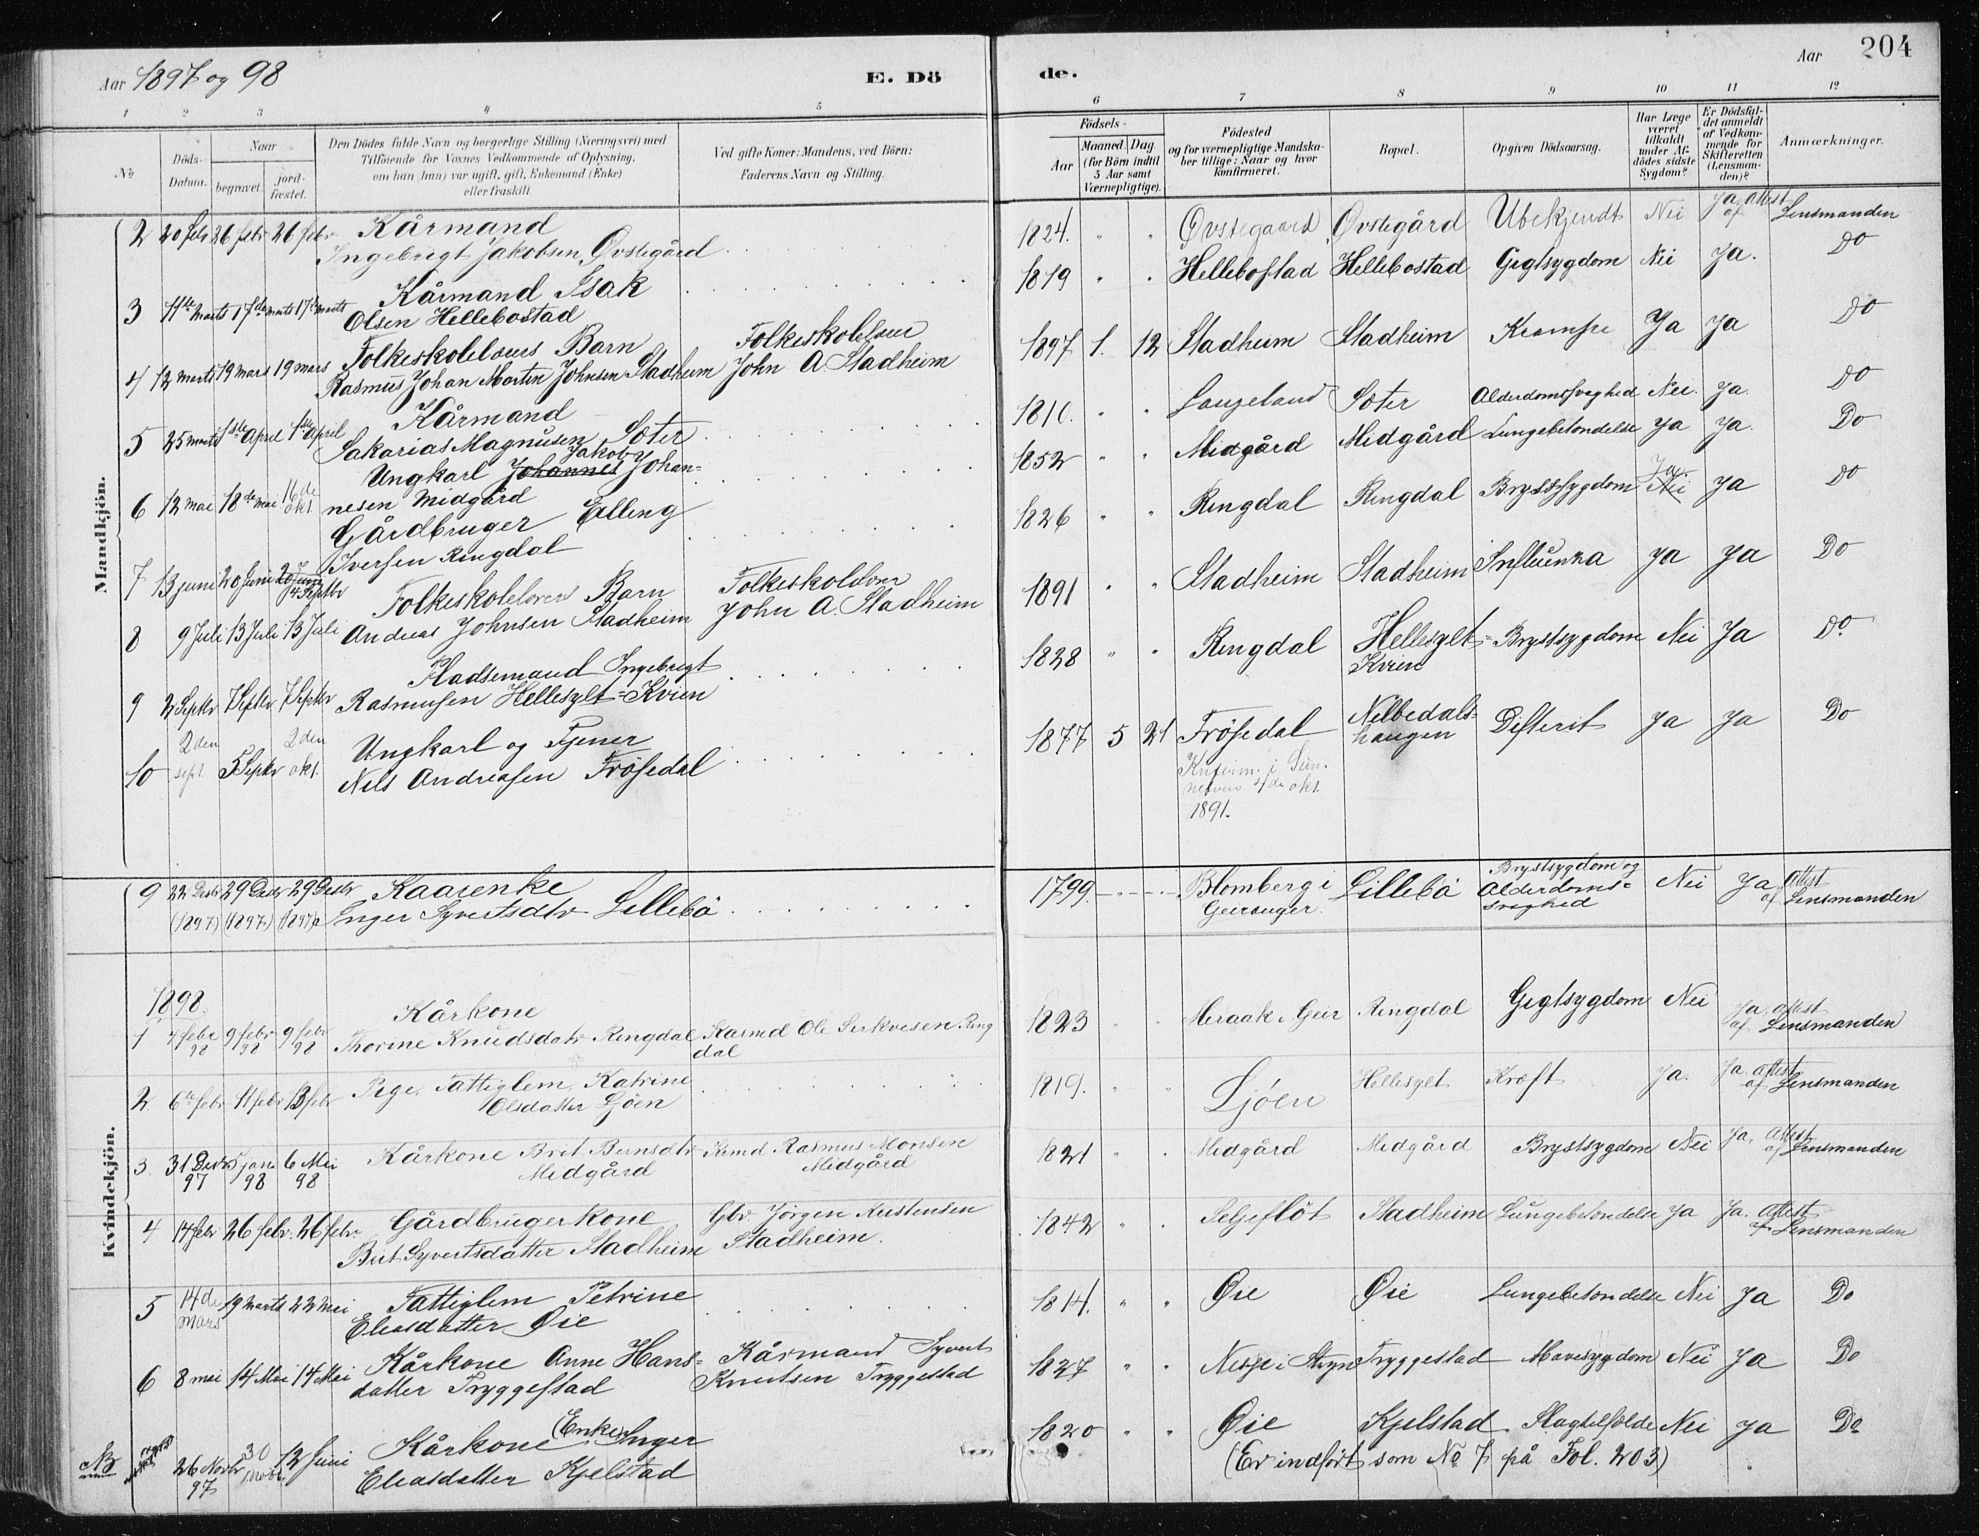 Aar 1897 og 98
E. Dö
de.
Aar
204
1 2 3 4 5 6 7 8 9 10 11 12
No
Döds-Datum.
Naar
begravet.
jord-fæstet.
Den Dödes fulde Navn og borgerlige Stilling (Næringsvei) med
Tilföiende for Voxnes Vedkommende af Oplysning,
om han (hun) var ugift, gift, Enkemand (Enke)
eller fraskilt.
Ved gifte Koner: Mandens, ved Börn:
Faderens Navn og Stilling.
Födsels-
Aar
Maaned. Dag.
(for Börn indtil
5 Aar samt
Værnepligtige).
Födested
og for værnepligtige Mandska-
ber tillige: Naar og hvor
konfirmeret.
Bopæl.
Opgiven Dödsaarsag.
Har Læge
været
tilkaldt
under Af-
dödes sidste
Sygdom?
Er Dödsfal-
det anmeldt
af Vedkom-
mende for
Skifteretten
(Lensman-
den)?
Anmærkninger.
Mandkjön.
2 20 febr 26 febr 26 febr Kårmand
Ingebrigt Jakobsen Øvstegård
1824. " " Øvstegaard Øvstegård Ubekjendt Nei Ja, attest af Lensmanden
3 11te Marts 17de marts 17de marts Kårmand Isak
Olsen Hellebostad
1819 " " Hellebostad Hellebostad Gigtsygdom Nei Ja. Do
4 12 marts 19 mars 19 mars Folkeskolelærers Barn
Rasmus Johan Morten Johnsen Stadheim
Folkeskolelærer
John A Stadheim
1897 1. 12 Stadheim Stadheim Krampe Ja Ja Do
5 25 marts 1ste April 1ste April Kårmand
Sakarias Magnusen Sæter
1810. " " Langeland Sæter Alderdomssvaghed Nei. Ja. Do
6 12 mai 18de mai 16de okt Ungkarl Johannes Jakob Johan-
nesen Midgård
1852 " " Midgård Midgård Lungebetændelse Ja Ja. Do
7 13 juni 20 Juni 20 Juni
4 Septbr
Gårdbruger Elling
Iversen Ringdal
1826 " " Ringdal Ringdal Brystsygdom Ja.
Nei Ja Do
8 9 Juli 13 Juli 13 Juli Folkeskolelærer Barn
Andreas Johnsen Stadheim
Folkeskolelærer
John A. Stadheim
1891 " " Stadheim Stadheim Influenza Ja Ja Do
9 2 Septbr 7 Septbr 7 Septbr Pladsemand Ingebrigt
Rasmusen Hellesylt-Kvien
1828 " " Ringdal Hellesylt-
Kvien Brystsygdom Nei Ja Do.
10 2den sept. 5 Septbr 2den okt. Ungkarl og Tjener
Nils Andreasen Frøsedal
1877 5 21 Frøsedal
4de okt.
1891.
haugen Difterit Ja Ja Do
Kvindekjön.
9 22 Decbr (1897) 29 Decbr (1897) 29 Decbr (1897) Kaarenke
Enger Syvertsdtr Lillebø
1799. Blomberg i
Geiranger. Lillebø Brystsygdom og
Alderdoms-
svaghed Nei Ja attest
af Lensmanden
1898.
1 4 febr 98 9 febr 98 9 febr 98 Kårkone
Thorine Knudsdatr Ringdal
Ole Ring
dal
1823 Meraak i Geir Ringdal Gigtsygdom Nei Ja, attest
af Lensmanden
2 6te febr 11 febr 13 febr Pige, Fattiglem, Katrine
Olsdatter Ljøen
1819. " " Ljøen Hellesylt Kræft Ja. Ja. attest
af Lensmanden
3. 31 Decbr 97 5 jan 98 6 Mei 98 Kårkone Brit
Midgård
Kmd Rasmus Monsen
Midgård
1821 " " Midgård Midgård Brystsygdom Nei Ja, Attest
af Lensmanden
4 14 febr 26 febr. 26 febr Gårdbrugerkone
Brit Syvertsdatter Stadheim
Gbr Jørgen
Stadheim.
1842 " " Seljeflöt Stadheim Lungebetændelse Ja Ja. Attest
af Lensmanden
5 14de Mars 19 marts 22 mei Fattiglem Petrine
Eliasdatter Øie
1814. " " Øie Øie Lungebetændelse Nei Ja Do
6 8 mai 14 Mai 14 Mei Kårkone Anne Hans-
datter Tryggestad
Kårmand Syvert
Knutsen Tryggestad
1827 " " i Stryn Tryggestad Mavesygdom Nei Ja Do
NB 26 Novbr 97 30 Novbr 12 Juni Kårkone (Enke) Inger
Eliasdatter Kjelstad
1820 " " Øie Kjelstad Slagtilfælde Nei Ja Do
(Er indført som No 7 på Fol. 203)